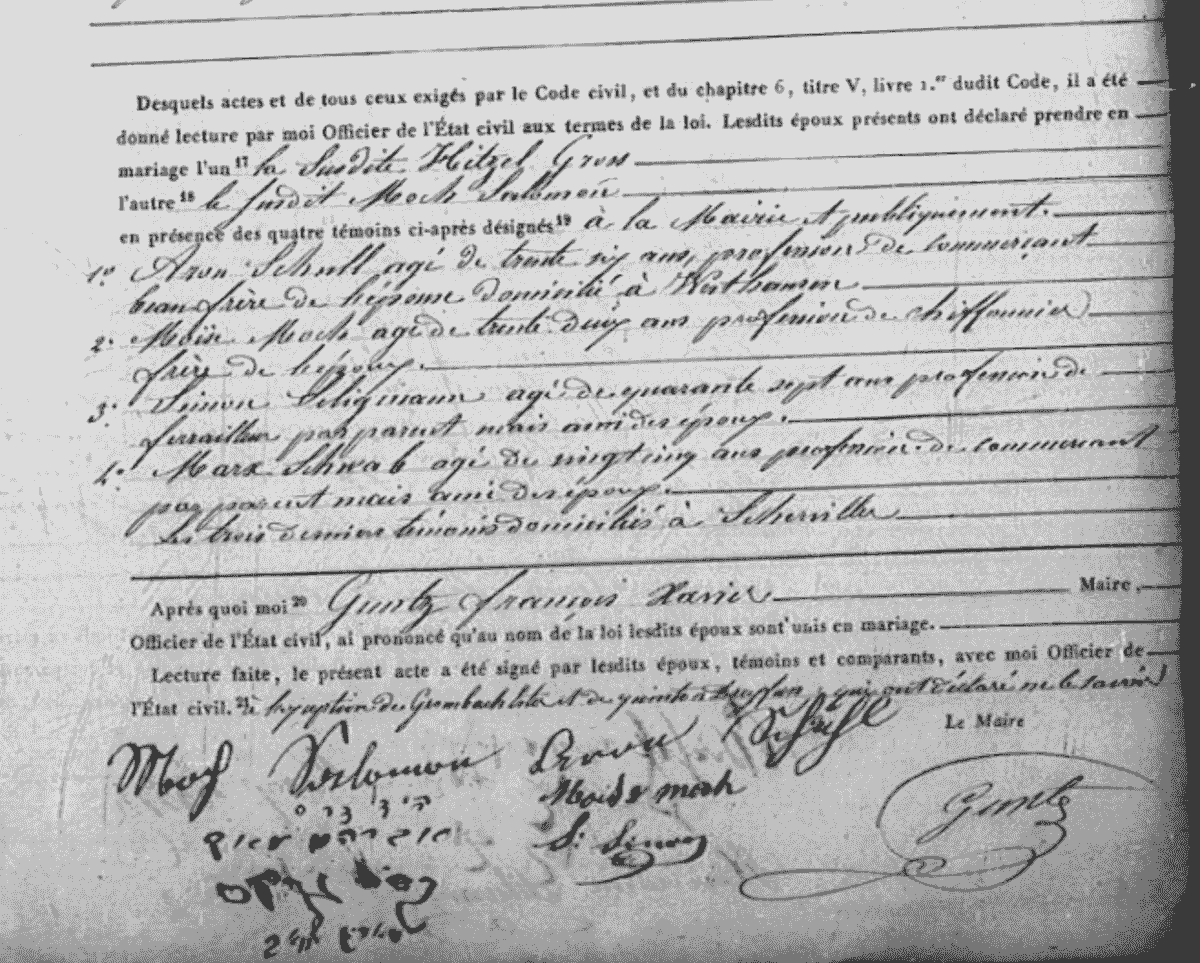 Desquels actes et de tous ceux exigés par le Code civil, et du chapitre 6, titre V, livre 1.er dudit Code, il a été
donné lecture par moi Officier de l'État civil aux termes de la loi. Lesdits époux présents ont déclaré prendre en
mariage l'un 17 la Susdite Hitzel Gross
l'autre 18 le susdit Moch Salomon
en présence des quatre témoins ci-après désignés 19 à la Mairie et publiquement.
1.° Aron Schull agé de trente six ans, profession de commerçant
beau frère de l'épouse domicilié à
2.° Moïse Moch agé de trente deux ans profession de chiffonnier
frère de l'époux.
3.° Simon Seligmann agé de quarante sept ans profession de
ferrailleur pas parent mais ami des époux.
4.° Marx Schwab agé de vingt cinq ans profession de commercant
pas parent mais ami des époux.
Les trois derniers témoins domiciliés à Scherviller
Après quoi moi 20 Guntz François Xavier Maire,
Officier de l'État civil, ai prononcé qu'au nom de la loi lesdits époux sont unis en mariage.
Lecture faite, le présent acte a été signé par lesdits époux, témoins et comparants, avec moi Officier de
l'État civil. 21 à l'exception de et de qui ont déclaré ne le savoir
Le Maire
Moch Salomon
Moise moch
S: Simon
Guntz